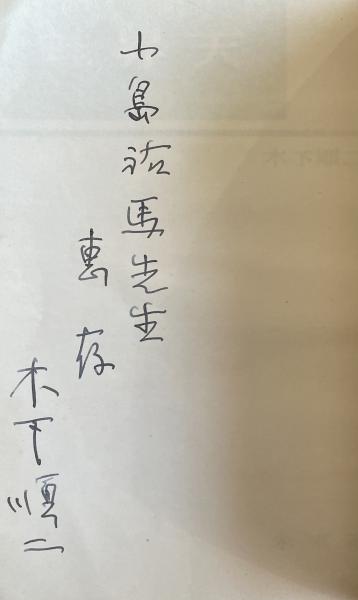 小島祐馬先生
惠存
木下順二